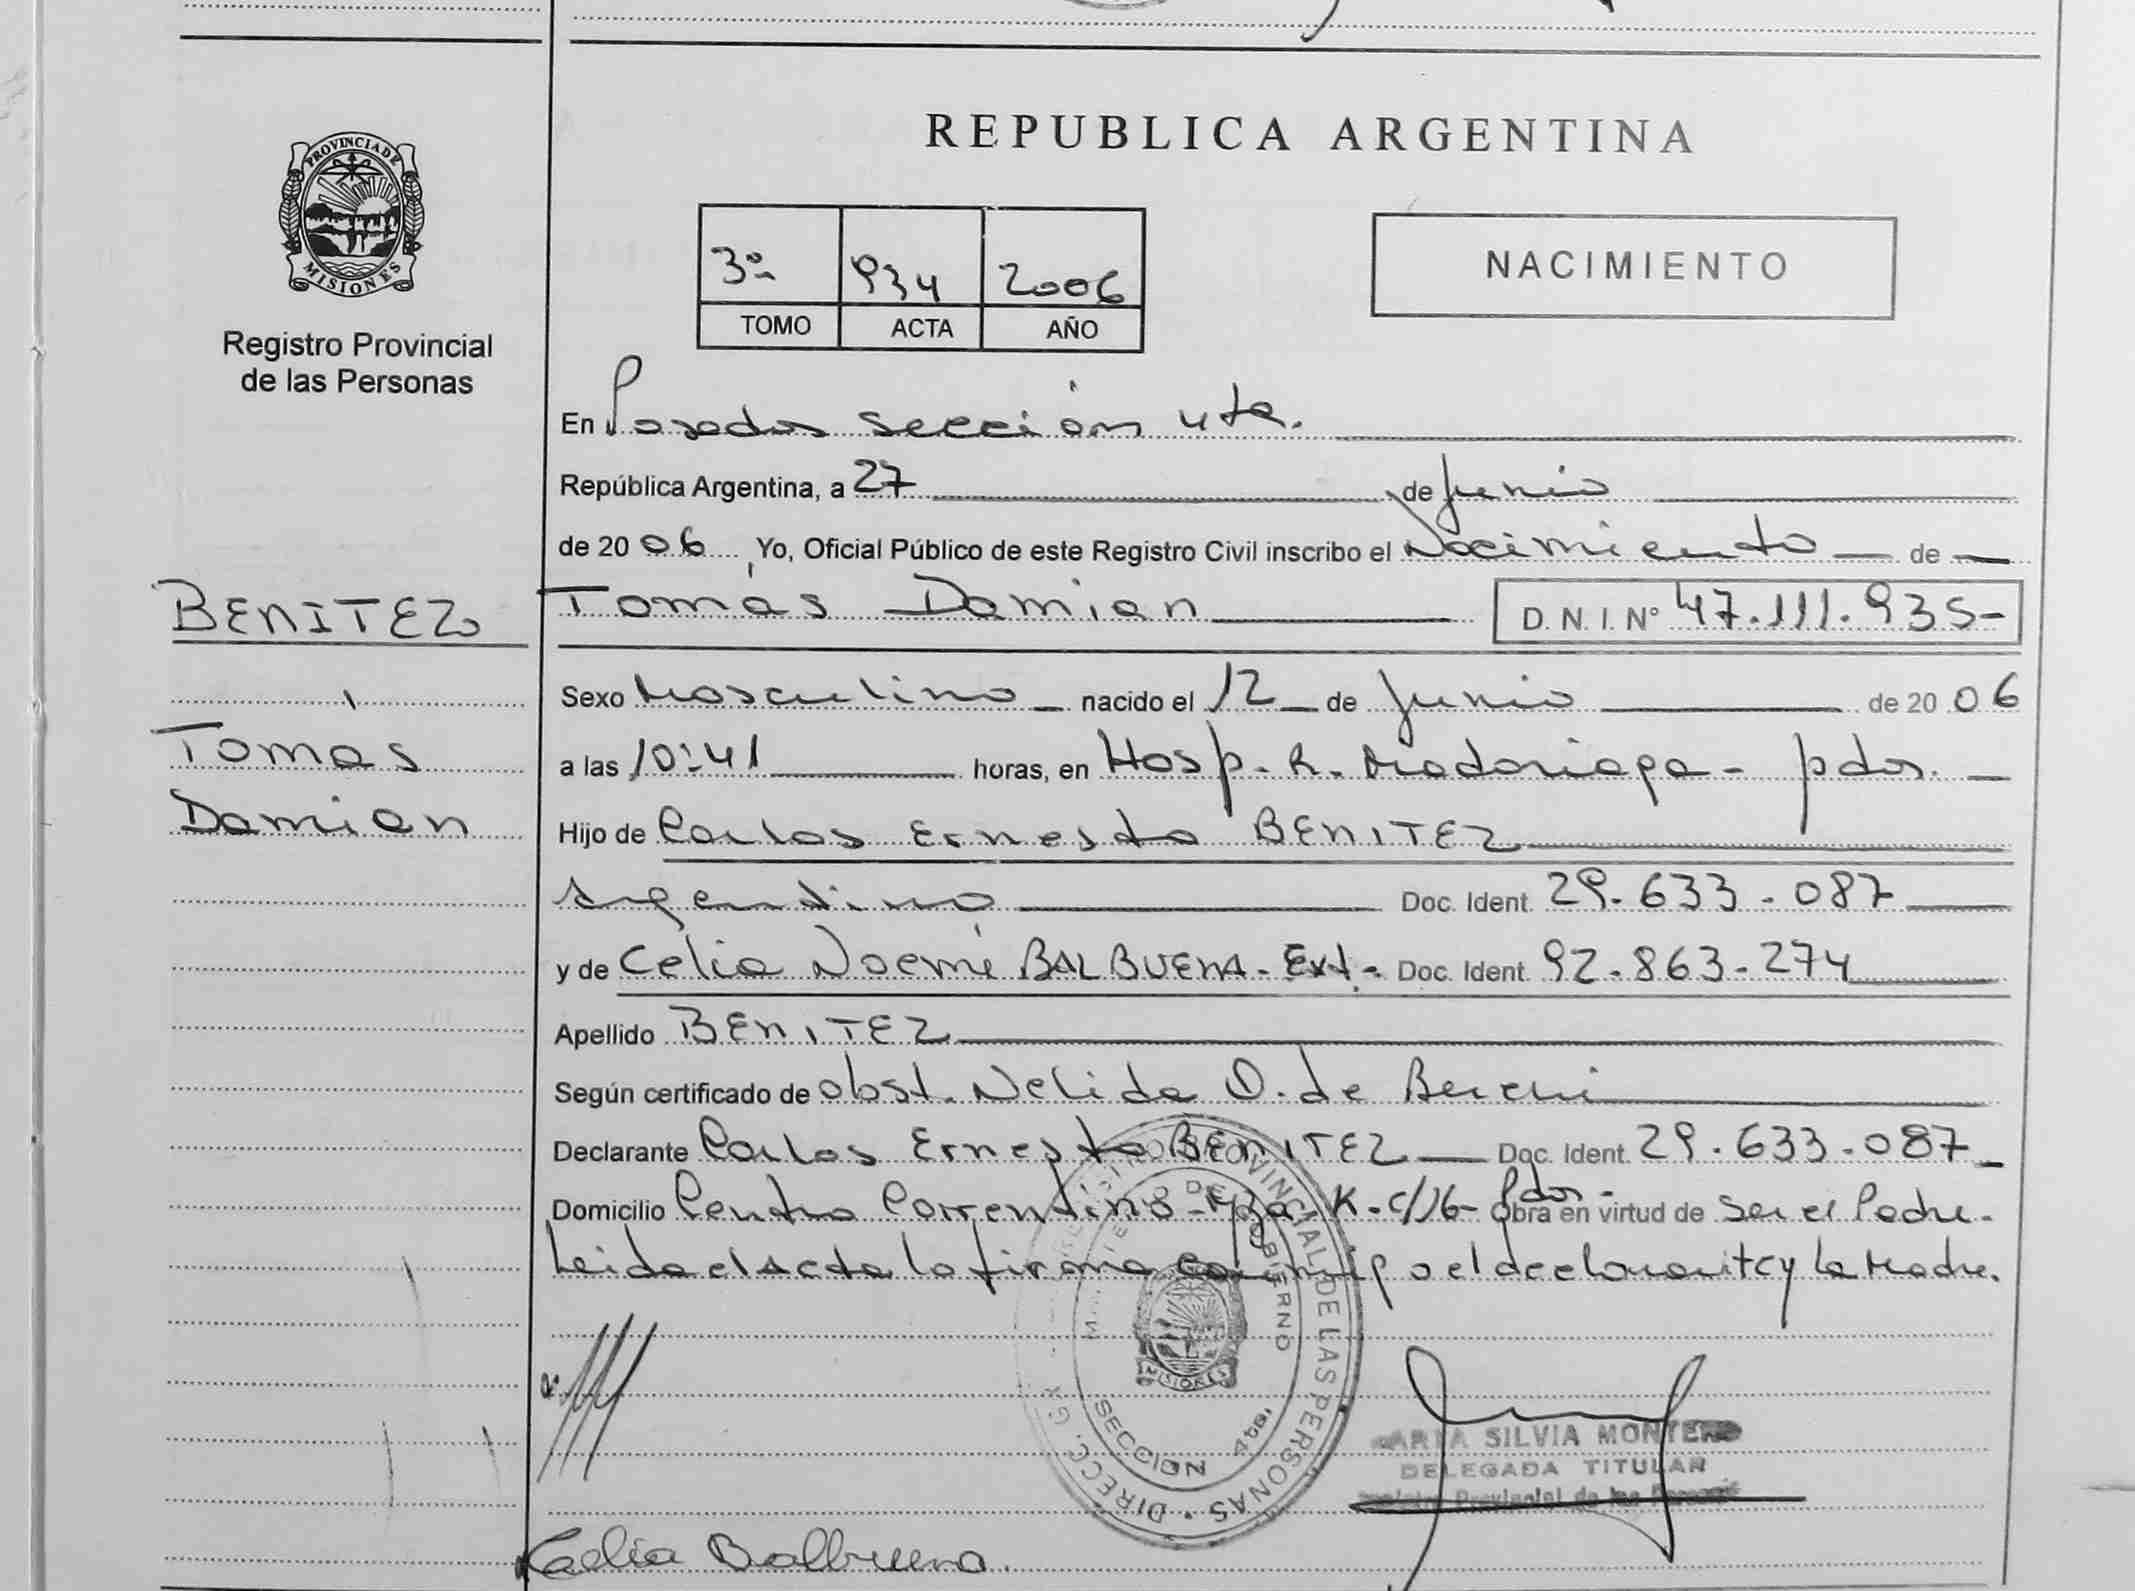 REPUBLICA ARGENTINA
PROVINCIA DE
MISIONES
Registro Provincial
de las Personas
3º 934 2006
TOMO ACTA AÑO
NACIMIENTO
En Posadas sección 4ta.
República Argentina, a 27 de Junio
de 20 06 Yo, Oficial Público de este Registro Civil inscribo el Nacimiento de
BENITEZ
Tomás Damian D. N. I. Nº 47.111.935-
Tomás
Damian
Sexo Masculino nacido el 12 de Junio de 20 06
a las 10:41 horas, en Hosp. R. Madariaga - pdas.
Hijo de Carlos Ernesto BENITEZ
Argentino Doc. Ident. 29.633.087
y de Celia Noemí BALBUENA - Ext. Doc. Ident. 92.863.274
Apellido BENITEZ
Según certificado de obst. Nelida O. de
Declarante Carlos Ernesto BENITEZ Doc. Ident. 29.633.087
Domicilio Centro Correntino - Mza K - c/16 - Pdas - Obra en virtud de ser el Padre.
Leida el Acta la firma conmigo el declarante y la Madre.
DIRECC. GRAL. REGISTRO PROVINCIAL DE LAS PERSONAS
MINISTERIO DE GOBIERNO
MISIONES
SECCION 4ta.
SILVIA MONTERO
DELEGADA TITULAR
Registro Provincial de las Personas
Celia Balbuena.